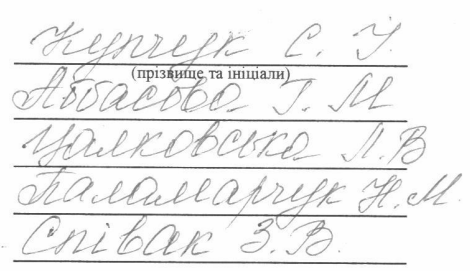 Купчук С. У.
(прізвище та ініціали)
Аббасова Т. М
Цалковська Л. В
Паламарчук Н. М.
Співак З. В.